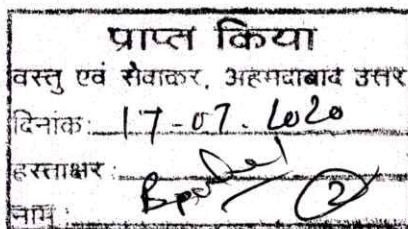 प्राप्त किया
वस्तु एवं सेवाकर, अहमदाबाद उत्तर
दिनांक: 17-07-2020
हस्ताक्षर :
नाम :
2